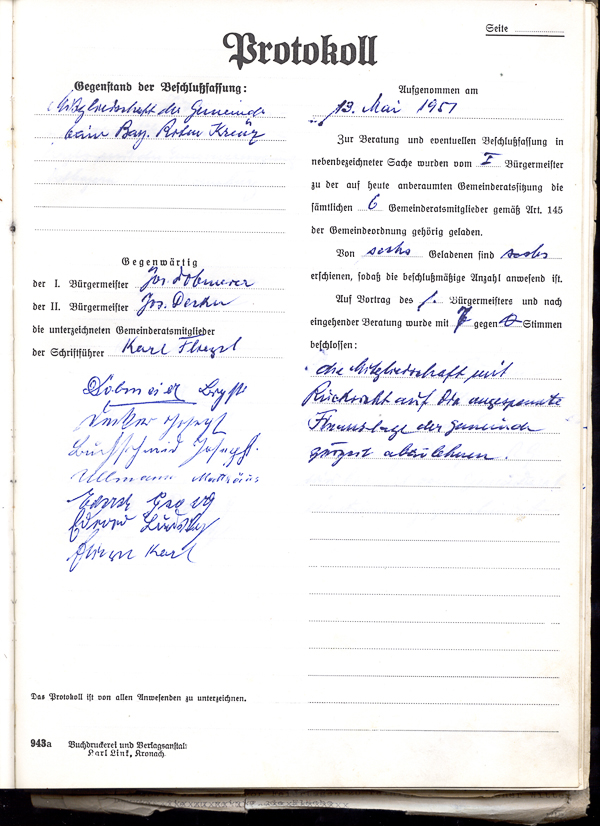 Seite
Protokoll
Gegenstand der Beschlußfassung:
Mitgliedschaft der Gemeinde
beim Bay. Roten Kreuz
Gegenwärtig
der I. Bürgermeister Jos. Dobmeier
der II. Bürgermeister Jos. Decker
die unterzeichneten Gemeinderatsmitglieder
der Schriftführer Karl
Dobmeier
Decker Josef
Josef
Ullmann Matthäus
Georg
Karl
Das Protokoll ist von allen Anwesenden zu unterzeichnen.
943a Buchdruckerei und Verlagsanstalt
Karl Link, Kronach
Aufgenommen am
13. Mai 1951
Zur Beratung und eventuellen Beschlußfassung in
nebenbezeichneter Sache wurden vom I Bürgermeister
zu der auf heute anberaumten Gemeinderatssitzung die
sämtlichen 6 Gemeinderatsmitglieder gemäß Art. 145
der Gemeindeordnung gehörig geladen.
Von sechs Geladenen sind sechs
erschienen, sodaß die beschlußmäßige Anzahl anwesend ist.
Auf Vortrag des I. Bürgermeisters und nach
eingehender Beratung wurde mit 7 gegen 0 Stimmen
beschlossen:
die Mitgliedschaft mit
Rücksicht auf die angespannte
Finanzlage der Gemeinde
zurzeit abzulehnen.